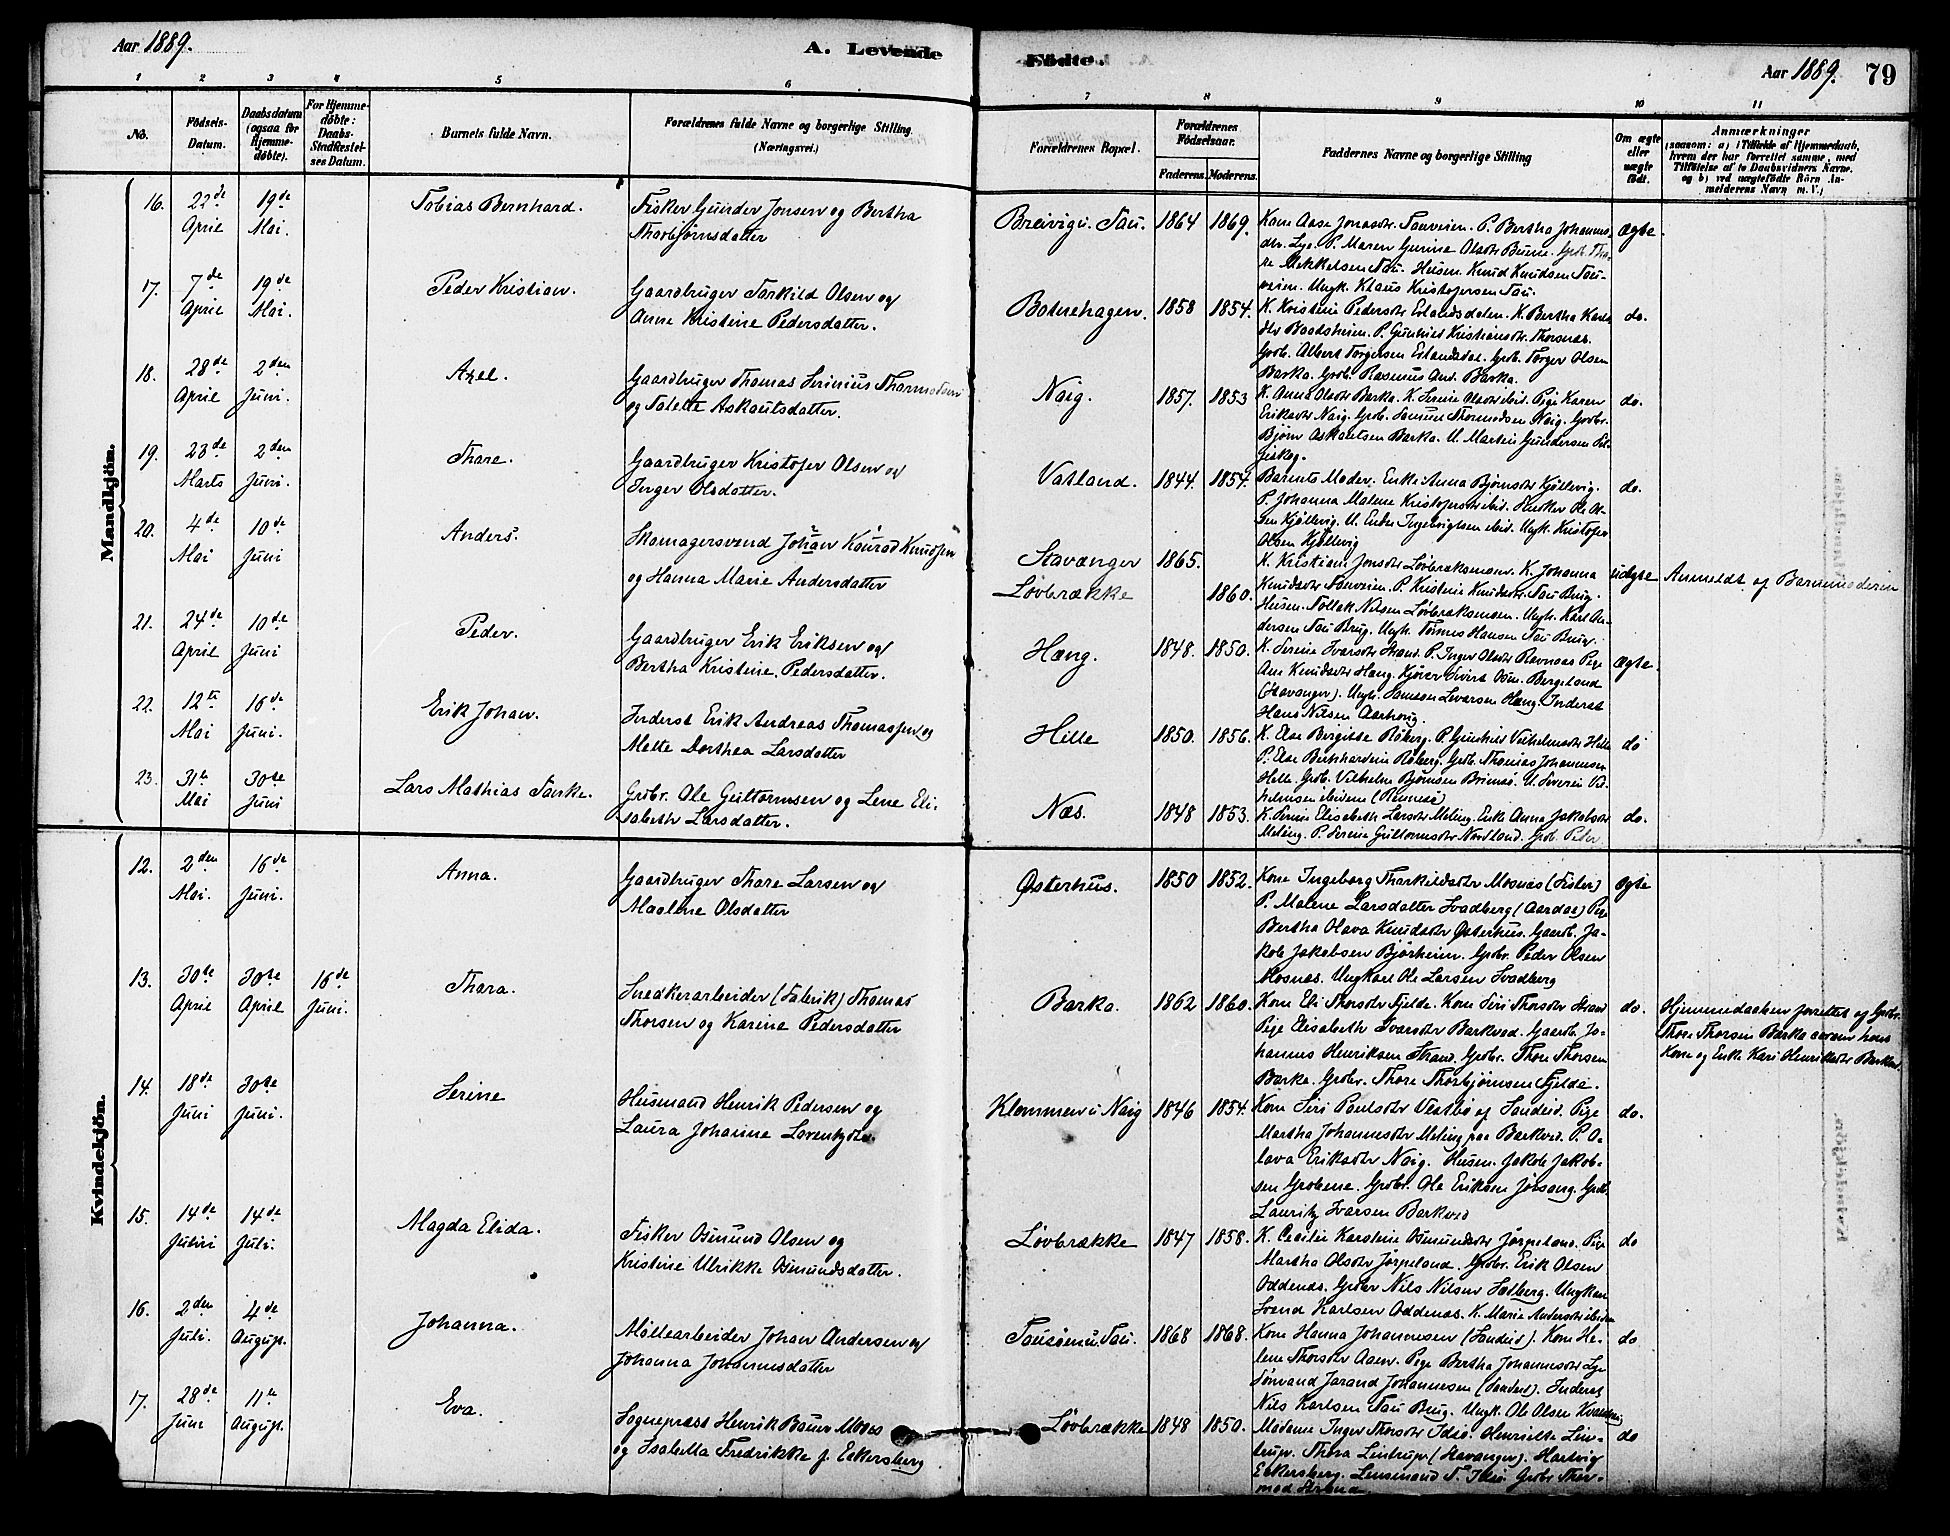 Aar 1889.
A. Levende
Födte.
Aar 1889.
79
1 2 3 4 5 6 7 8 9 10 11
No.
Födsels-Datum.
Daabsdatum (ogsaa for Hjemme-döbte).
For Hjemme-döbte: Daabs-Stadfæstel-ses Datum.
Barnets fulde Navn.
Forældrenes fulde Navne og borgerlige Stilling.
(Næringsvei.)
Forældrenes Bopæl.
Forældrenes Födselsaar.
Faderens. Moderens.
Faddernes Navne og borgerlige Stilling
Om ægte eller uægte födt.
Anmærkninger
(saasom: a) i Tilfælde af Hjemmedaab,
hvem der har forrettet samme, med
Tilföielse af to Daabsvidners Navne,
og b) ved uægtefödte Börn An-
melderens Navn m. V.)
Mandkjön.
16. 22de April 19de Mai. Tobias Bernhard. Fisker Gunder Jonsen og Bertha
Thorbjørnsdatter
Breivig u. Tau. 1864 1869. Kone Aase Jonasdtr. Tauveien. P. Bertha Johannes-
dtr. Lye. P. Maren Gurine Olsdtr
Mikkelsen Tau. Husm. Knud Knudsen Tau-
veien. Ungk. Klaus Kristofersen Tau.
ægte.
17. 7de April 19de Mai. Peder Kristian. Gaardbruger Torkild Olsen og
Anne Kristine Pedersdatter.
Botnehagen. 1858 1854. K. Kristine Pedersdtr Erlandsdalen. K. Bertha Karls
dtr Baadsheim. P. Gunhild Kristiansdtr. Thorsnæs.
Grdb. Albert Torgersen Erlandsdal. Grdb. Torger Olsen
Barka. Grdb. Rasmus And. Barka.
do.
18. 28de April 2den Juni. Axel. Gaardbruger Thomas Serinius Thormodsen
og Talette Askautsdatter.
Naig. 1857. 1853 K. Anna Olsdtr Barka. K. Serine Olsdtr ibid. Pige Karen
Eriksdtr Naig. Grdb. Samuel Thormodsen Naig. Grdbr.
Bjørn Askautsen Barka. U. Martin Gundersen
do.
19. 23de Marts 2den Juni. Thore. Gaardbruger Kristofer Olsen og
Inger Olsdatter.
Vatland. 1844. 1854. Barnets Moder. Enke Anna Bjørnsdtr Kjøllevig.
P. Johanna Malene Kristofersdtr ibid. Snedker Ole Ol-
sen Kjøllevig. U. Endre Ingebrigtsen ibid. Ungk. Kristofer
Olsen Kjøllevig
do.
20. 4de Mai 10de Juni Anders. Skomagersvend Johan Konrad Knudsen
og Hanna Marie Andersdatter
Stavanger 1865.
Løvbrække 1860.
K. Kristiane Jonsdtr Løvbræksmoen. K. Johanna
Knudsdtr Tauveien. P. Kristine Knudsdtr. Tau Brug.
Husm. Tollak Nilsen Løvbræksmoen. Ungk. Karl An-
dersen Tau Brug. Ungk. Tønnes Hansen Tau Brug.
uægte Anmeldt af Barnemoderen
21. 24de April 10de Juni Peder. Gaardbruger Erik Eriksen og
Bertha Kristine Pedersdatter.
Heng. 1848. 1850. K. Serine Ivarsdtr Strand. P. Inger Olsdtr Ravnaas Pige
Ane Knudsdtr Heng. Kjører Sivert Osm. Bergeland
(Stavanger). Ungk. Samson Larsen Heng. Inderst
Hans Nilsen
ægte.
22. 12te Mai 16de Juni. Erik Johan. Inderst Erik Andreas Thomassen og
Mette Dorthea Larsdatter
Helle 1850. 1856. K. Else Birgitte Røberg. P. Gunhild Vilhelmsdtr Helle
P. Else Bernhardine Røberg. Grdb. Thomas Johannesen
Helle. Grdb. Vilhelm Bjørnsen Brimsø. U. Severin Vil-
helmsen ibidem (Rennesø)
do
23. 31te Mai 30te Juni Lars Mathias Tanke. Grdbr. Ole Guttormsen og Lene Eli-
sabeth Larsdatter.
Næs. 1848 1853. K. Serine Elisabeth Larsdtr Meling. Enke Anna Jakobsdtr
Meling. P. Serine Guttormsdtr Nordland. Grdb. Peder
do.
Kvindekjön.
12. 2den Mai. 16de Juni. Anna. Gaardbruger Thore Larsen og
Malene Olsdatter
Østerhus. 1850 1852. Kone Ingeborg Thorkildsdtr Mosnæs (Fister)
P. Malene Larsdatter Svadberg (Aardal) Pige
Bertha Olava Knudsdtr Østerhus. Gaardb. Ja-
kob Jakobsen Bjørheim. Grdbr. Peder Olsen
Mosnæs. Ungkarl Ole Larsen Svadberg
ægte
13. 30te April 30te April 16de Juni. Thora. Snedkerarbeider (Fabrik) Thomas
Thorsen og Karine Pedersdatter
Barka. 1862 1860. Kone Eli Thorsdtr Fjelde. Kone Siri Thorsdtr Strand
Pige Elisabeth Ivarsdtr Barkved. Gaardb. Jo-
hannes Henriksen Strand. Grdbr. Thore Thorsen
Barka. Grdbr. Thore Thorbjørnsen Fjelde.
do. Hjemmedaaben forrettet af Grdbr.
Thore Thorsen Barka hans
Kone og Enke Kari Henriksdtr Barka
14. 18de Juni 30te Juni. Serine Husmand Henrik Pedersen og
Laura Johanne Lorentzdtr.
Klommen u. Naig 1846 1854. Kone Siri Paulsdtr Vestbø af Sandeid. Pige
Martha Johannesdtr Meling paa Barkved. P. O-
lava Eriksdtr Naig. Husm. Jakob Jakob-
sen Grobene. Grdbr. Ole Eriksen Jøssang. Grdb.
Lauritz Ivarsen Barkved
do.
15. 14de Juni 14de Juli. Magda Elida. Fisker Osmund Olsen og
Kristine Ulrikke Osmundsdatter.
Løvbrække 1847 1858. K. Cecilie Karstine Osmundsdtr Jørpeland. Pige
Martha Olsdtr Jørpeland. Grdbr. Erik Olsen
Oddenæs. Grdbr Nils Nilsen Solberg. Ungkarl
Svend Karlsen Oddenæs. K. Marie Andersdtr ibidem
do
16. 2den Juli. 4de August. Johanna. Møllearbeider Johan Andersen og
Johanna Johannesdatter
Tausøen u. Tau. 1868 1868. Kone Hanna Johannesen (Sandeid). Kone He-
lene Thorsdtr Aaen. Pige Bertha Johannesdtr Lye
Sømand Jorand Johannesen (Sandeid). Inderst
Nils Karlsen Tau Brug. Ungk. Ole Olsen
do
17. 28de Juni 11te August. Eva. Sogneprest Henrik Bauer Moses
og Isabella Fredrikke f. Eckersberg
Løvbrække 1848 1850. Madame Inger Thorsdtr Idsø. Henriette Len-
trup. Thora Lintrup. (Stavanger). Hartvig
Eckersberg. Lensmand T. Idsø. Grdbr Thor-
mod Strand.
do